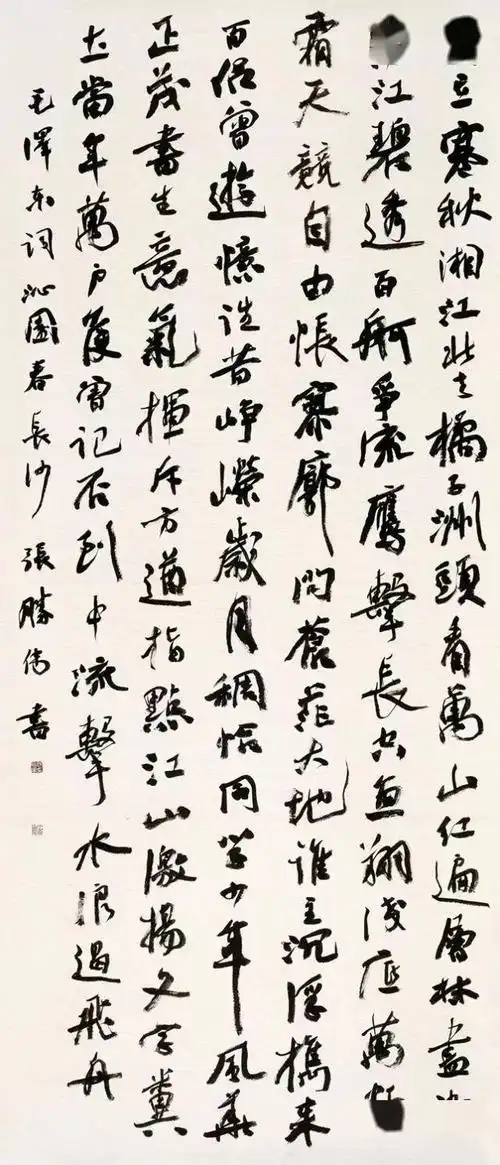 立寒秋湘江北去橘子洲頭看萬山红遍層林盡
江碧透百舸爭流鷹擊長空魚翔淺底萬
霜天競自由悵寥廓問蒼茫大地誰主沉浮攜來
百侣曾遊憶往昔崢嶸歲月稠恰同學少年風華
正茂書生意氣揮斥方遒指點江山激揚文字糞
土當年萬户侯曾記否到中流擊水浪遏飛舟
毛澤东词沁園春長沙 張勝伟書